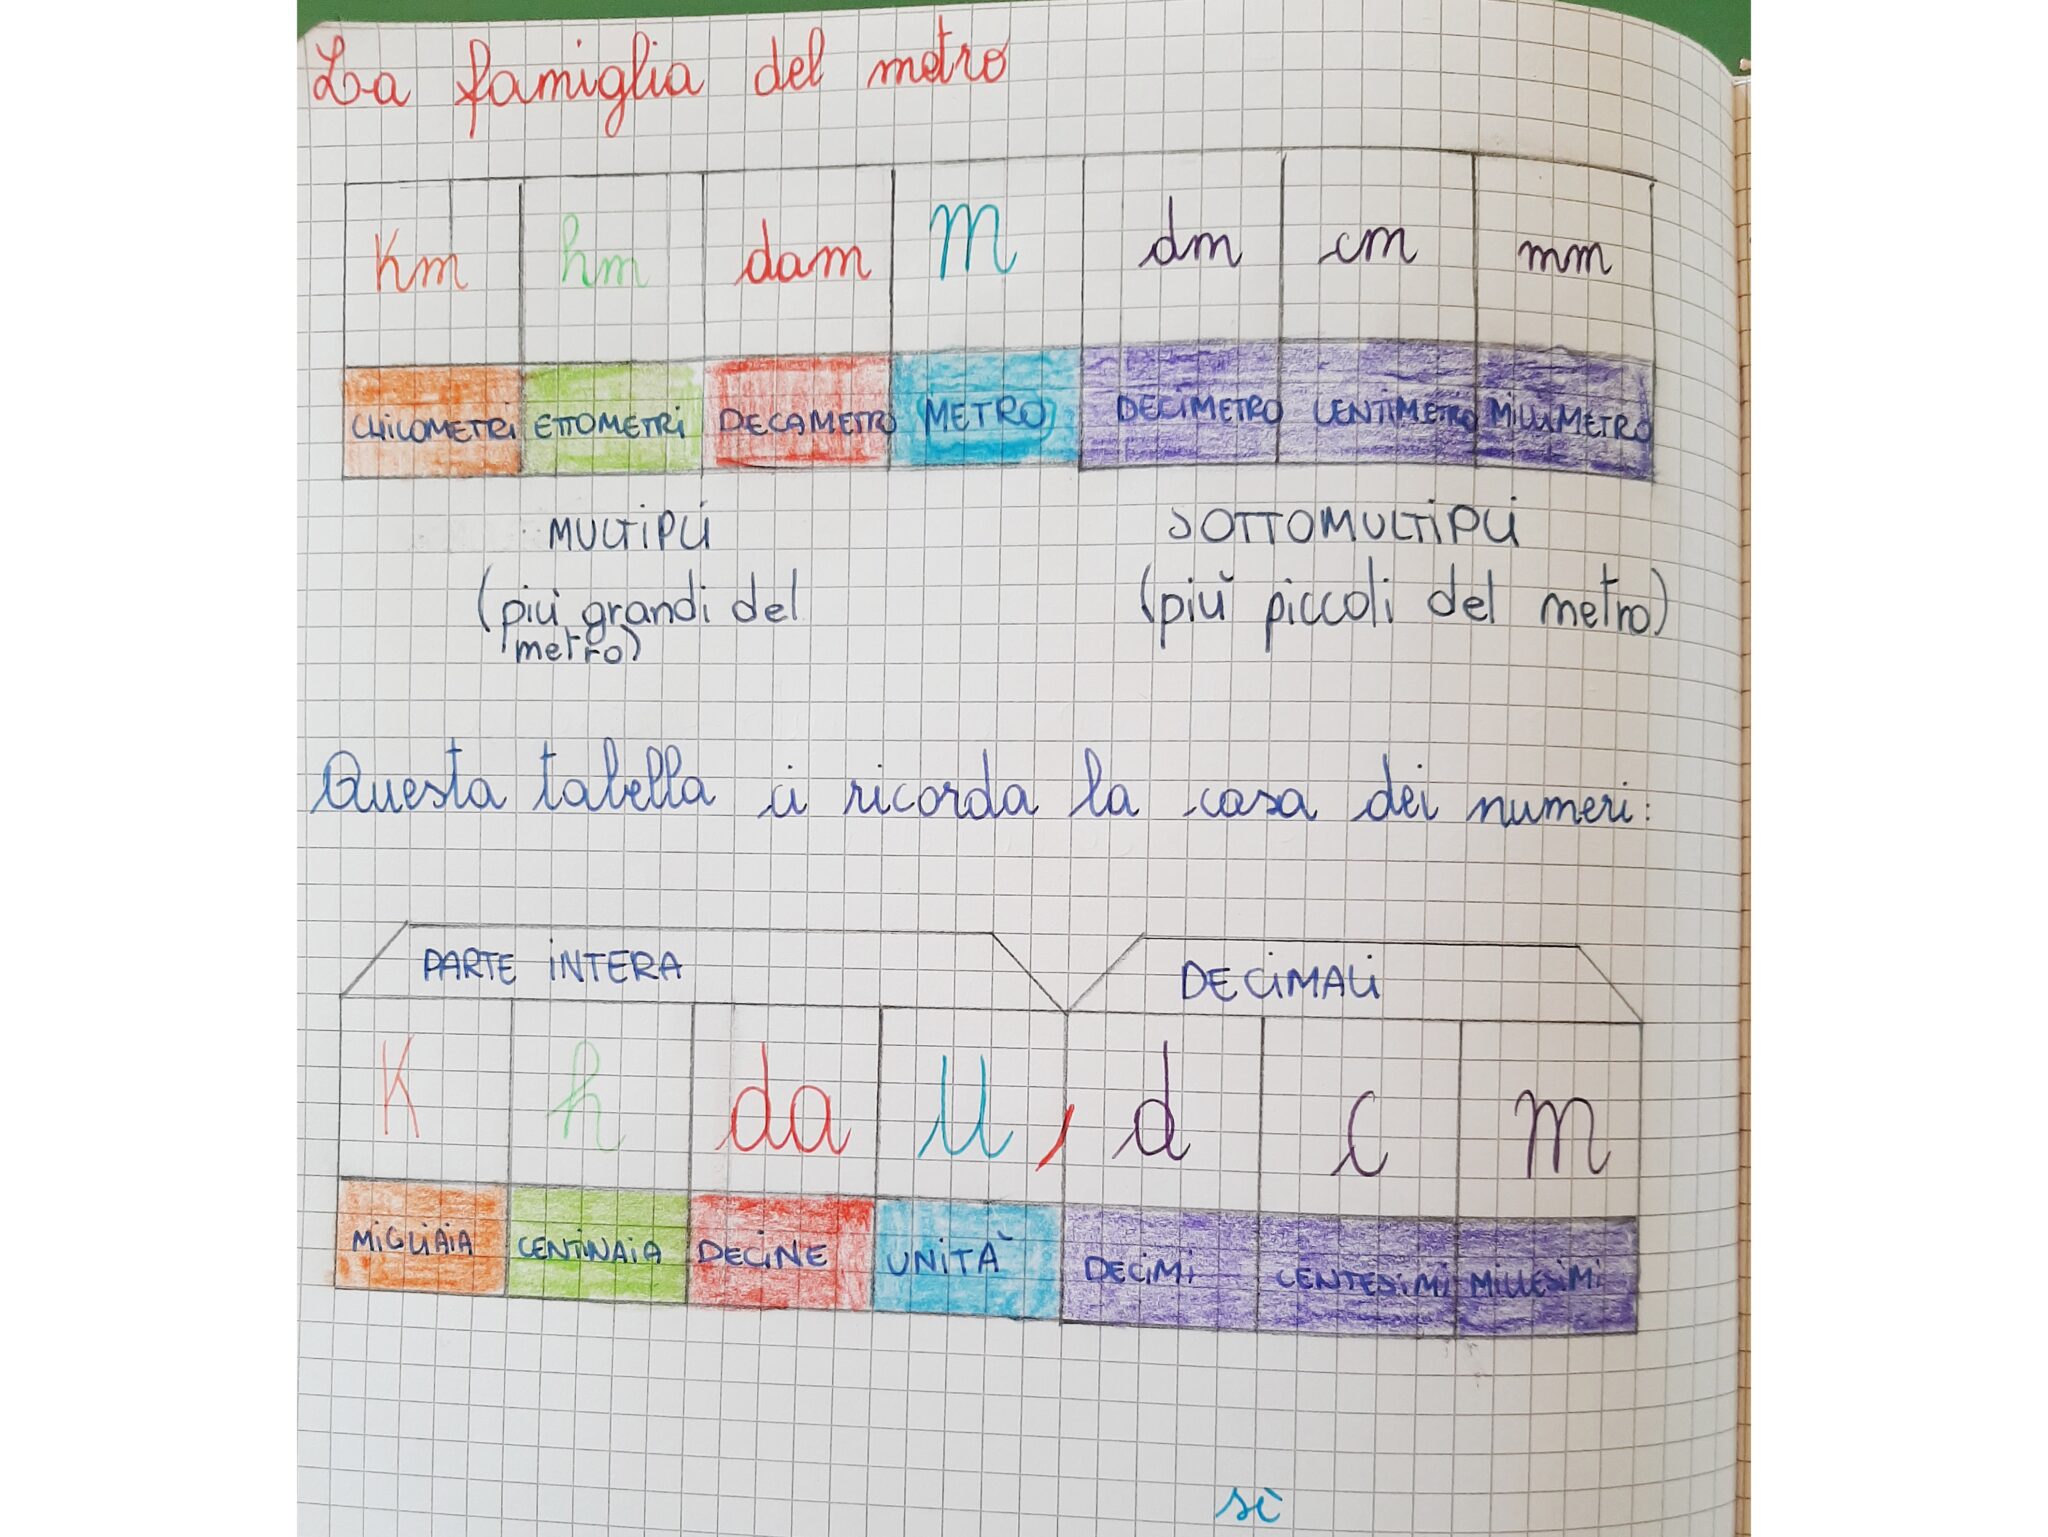 La famiglia del metro
Km hm dam m dm cm mm
CHILOMETRI ETTOMETRI DECAMETRO METRO DECIMETRO CENTIMETRO MILLIMETRO
MULTIPLI SOTTOMULTIPLI
(più grandi del (più piccoli del metro)
metro)
Questa tabella ci ricorda la casa dei numeri:
PARTE INTERA DECIMALI
K h da u , d c m
MIGLIAIA CENTINAIA DECINE UNITÀ DECIMI CENTESIMI MILLESIMI
sì